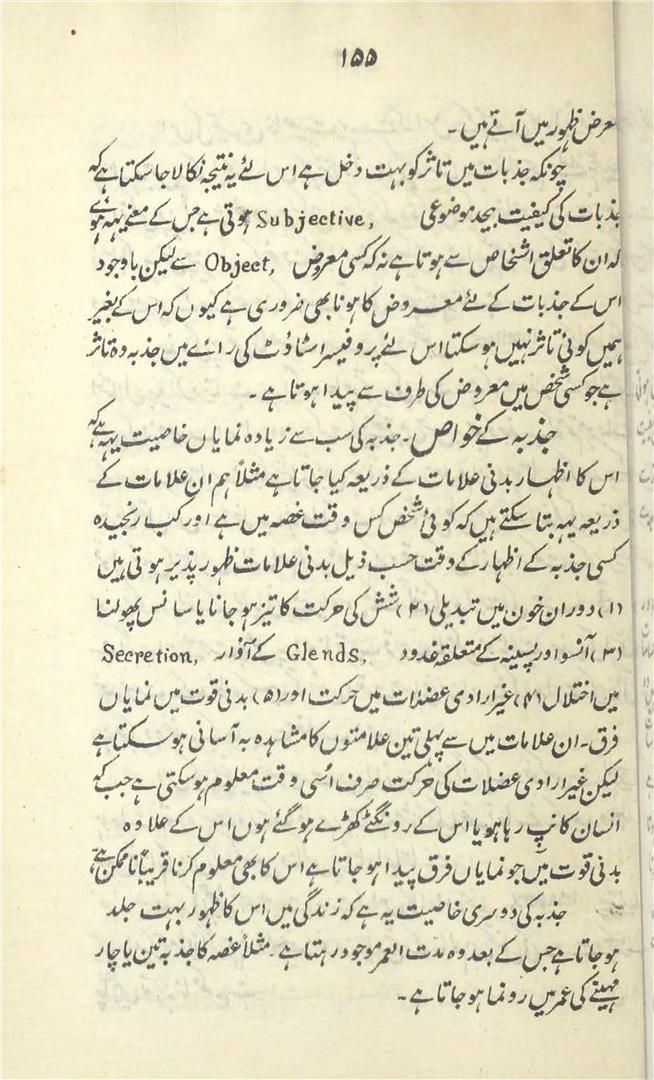 ۱۵۵
معرض ظہور میں آتے ہیں۔
چونکہ جذبات میں تاثر کو بہت دخل ہے اس لئے یہ نتیجہ نکالا جا سکتا ہے کہ
جذبات کی کیفیت بیحد موضوعی Subjective, ہوتی ہے جس کے معنے یہہ ہوئے
کہ ان کا تعلق اشخاص سے ہوتا ہے نہ کہ کسی معروض Object, سے لیکن باوجود
اس کے جذبات کے لئے معروض کا ہونا بھی ضروری ہے کیوں کہ اس کے بغیر
ہمیں کوئی تاثر نہیں ہو سکتا اس لئے پروفیسر اسٹاؤٹ کی رائے میں جذبہ وہ تاثر
ہے جو کسی شخص میں معروض کی طرف سے پیدا ہوتا ہے۔
جذبہ کے خواص۔ جذبہ کی سب سے زیادہ نمایاں خاصیت یہہ ہے کہ
اس کا اظہار بدنی علامات کے ذریعہ کیا جاتا ہے مثلاً ہم ان علامات کے
ذریعہ یہہ بتا سکتے ہیں کہ کوئی شخص کس وقت غصہ میں ہے اور کب رنجیدہ
کسی جذبہ کے اظہار کے وقت حسب ذیل بدنی علامات ظہور پذیر ہوتی ہیں
(۱) دوران خون میں تبدیلی (۲) شش کی حرکت کا تیز ہو جانا یا سانس پھولنا
(۳) آنسو اور پسینہ کے متعلقہ غدود Glends, کے آؤار Secretion,
میں اختلال (۴) غیر ارادی عضلات میں حرکت اور (۵) بدنی قوت میں نمایاں
فرق۔ ان علامات میں سے پہلی تین علامتوں کا مشاہدہ بہ آسانی ہو سکتا ہے
لیکن غیر ارادی عضلات کی حرکت صرف اُسی وقت معلوم ہو سکتی ہے جب کہ
انسان کانپ رہا ہو یا اس کے رونگٹے کھڑے ہو گئے ہوں اس کے علاوہ
بدنی قوت میں جو نمایاں فرق پیدا ہو جاتا ہے اس کا بھی معلوم کرنا قریباً نا ممکن ہے
جذبہ کی دوسری خاصیت یہ ہے کہ زندگی میں اس کا ظہور بہت جلد
ہو جاتا ہے جس کے بعد وہ مدت العمر موجود رہتا ہے۔ مثلاً غصہ کا جذبہ تین یا چار
مہینے کی عمر میں رونما ہو جاتا ہے۔